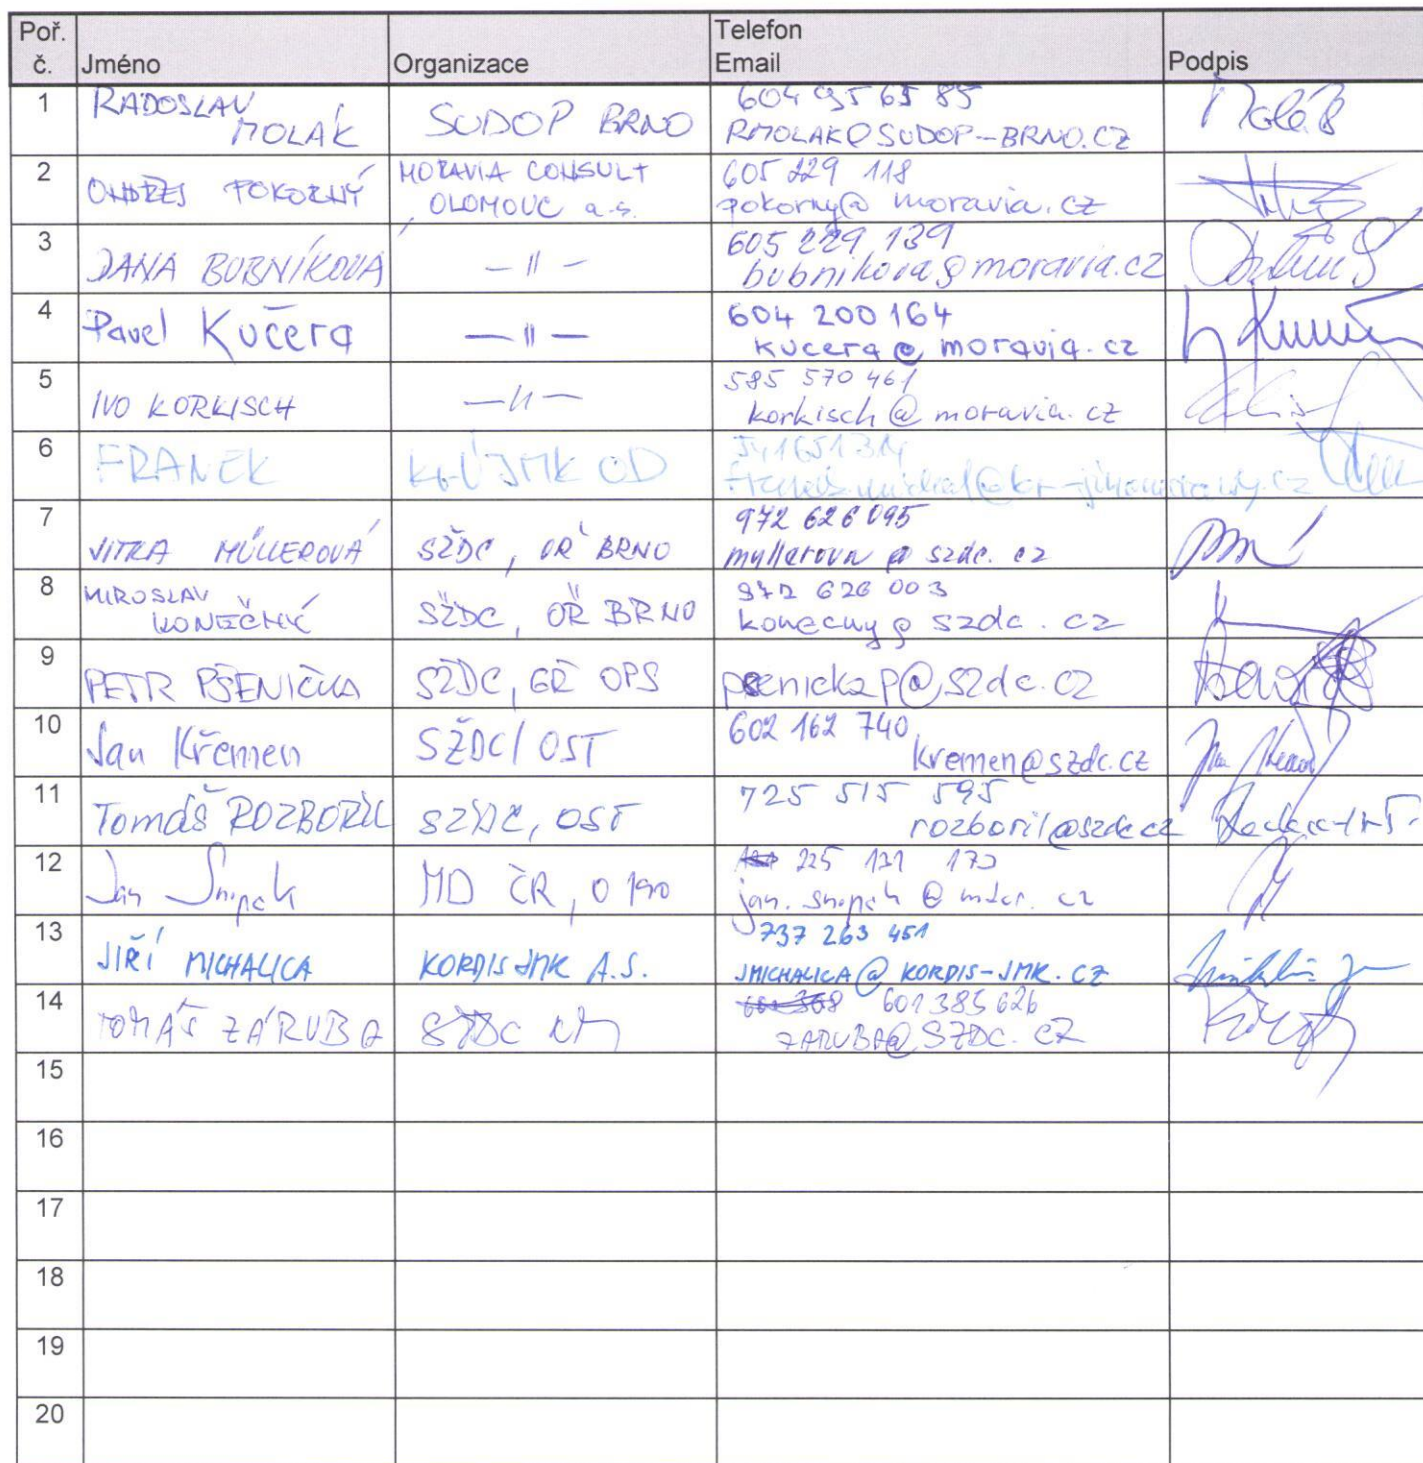 Poř. č. Jméno Organizace Telefon Email Podpis
1 RADOSLAV MOLÁK SUDOP BRNO 604 956 585 RMOLAK@SUDOP-BRNO.CZ
2 ONDŘEJ POKORNÝ MORAVIA CONSULT OLOMOUC a.s. 605 229 118 pokorny@moravia.cz
3 JANA BUBNÍKOVÁ — || — 605 229 139 bubnikova@moravia.cz
4 Pavel Kučera — || — 604 200 164 kucera@moravia.cz
5 IVO KORKISCH — || — 585 570 461 korkisch@moravia.cz
6 FRANEK KrÚ JMK OD
7 JITKA MÜLLEROVÁ SŽDC, OŘ BRNO 972 626 095 mullerova@szdc.cz
8 MIROSLAV KONEČNÝ SŽDC, OŘ BRNO 972 626 003 konecny@szdc.cz
9 PETR PŠENIČKA SŽDC, GŘ OPS psenickaP@szdc.cz
10 Jan Křemen SŽDC/OST 602 162 740 kremen@szdc.cz
11 Tomáš ROZBOŘIL SŽDC, OST 725 515 595 rozboril@szdc.cz
12 Jan MD ČR, O 190 225 131
13 JIŘÍ MICHALICA KORDIS JMK A.S. 737 263 451 JMICHALICA@KORDIS-JMK.CZ
14 TOMÁŠ ZÁRUBA SŽDC 601 385 626 ZARUBA@SZDC.CZ
15
16
17
18
19
20